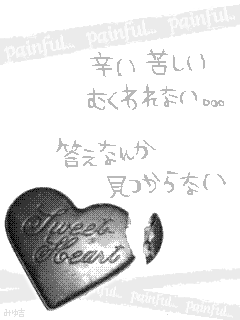 painful... painful... painful...
辛い 苦しい
むくわれない。。。
答えなんか
見つからない
Sweet
Heart
painful... painful...